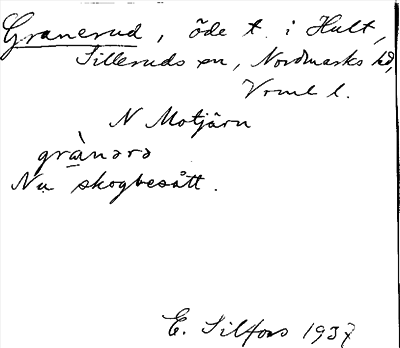 Granerud, öde t. i Hult,
Silleruds sn, Nordmarks hd,
Vrml l.
N Motjärn
grànərə
Nu skogbesått.
E. Silfors 1937